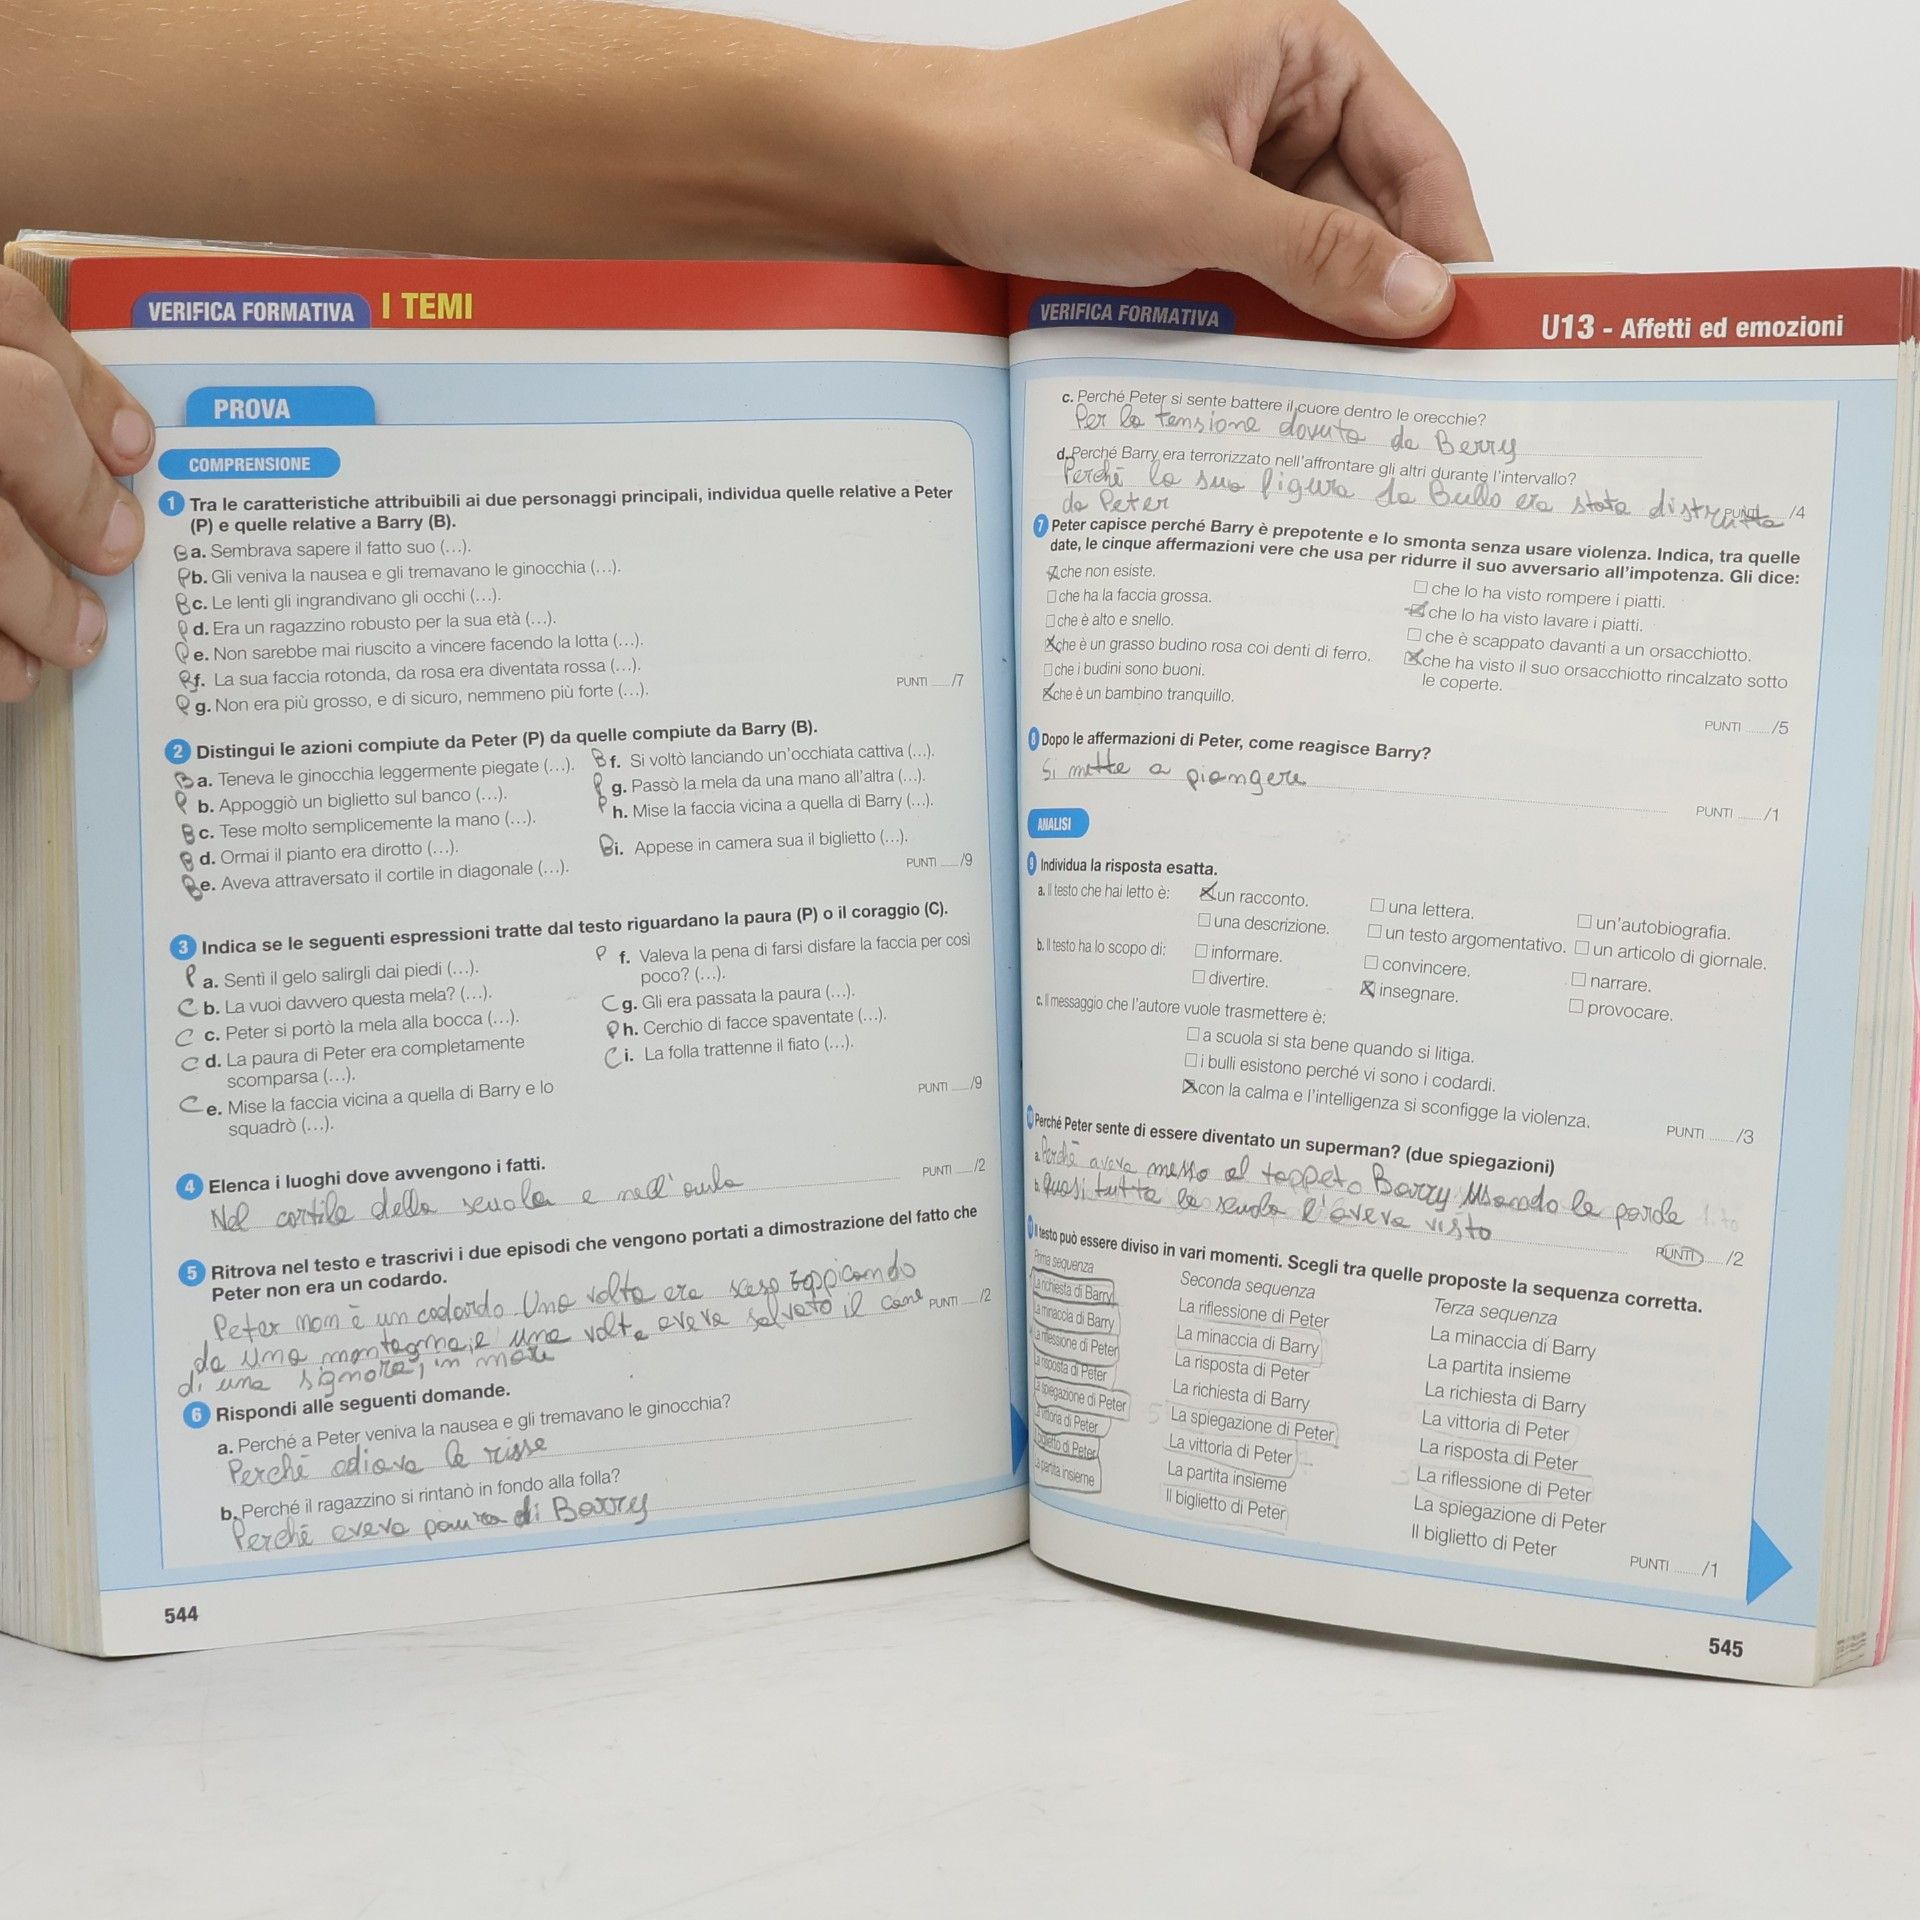 VERIFICA FORMATIVA I TEMI
PROVA
COMPRENSIONE
1 Tra le caratteristiche attribuibili ai due personaggi principali, individua quelle relative a Peter
(P) e quelle relative a Barry (B).
B a. Sembrava sapere il fatto suo (...).
P b. Gli veniva la nausea e gli tremavano le ginocchia (...).
B c. Le lenti gli ingrandivano gli occhi (...).
P d. Era un ragazzino robusto per la sua età (...).
P e. Non sarebbe mai riuscito a vincere facendo la lotta (...).
f. La sua faccia rotonda, da rosa era diventata rossa (...).
P g. Non era più grosso, e di sicuro, nemmeno più forte (...).
PUNTI ___/7
2 Distingui le azioni compiute da Peter (P) da quelle compiute da Barry (B).
B a. Teneva le ginocchia leggermente piegate (...).
P b. Appoggiò un biglietto sul banco (...).
B c. Tese molto semplicemente la mano (...).
B d. Ormai il pianto era dirotto (...).
B e. Aveva attraversato il cortile in diagonale (...).
B f. Si voltò lanciando un'occhiata cattiva (...).
P g. Passò la mela da una mano all'altra (...).
P h. Mise la faccia vicina a quella di Barry (...).
B i. Appese in camera sua il biglietto (...).
PUNTI ___/9
3 Indica se le seguenti espressioni tratte dal testo riguardano la paura (P) o il coraggio (C).
P a. Sentì il gelo salirgli dai piedi (...).
C b. La vuoi davvero questa mela? (...).
C c. Peter si portò la mela alla bocca (...).
C d. La paura di Peter era completamente
scomparsa (...).
C e. Mise la faccia vicina a quella di Barry e lo
squadrò (...).
P f. Valeva la pena di farsi disfare la faccia per così
poco? (...).
C g. Gli era passata la paura (...).
P h. Cerchio di facce spaventate (...).
C i. La folla trattenne il fiato (...).
PUNTI ___/9
4 Elenca i luoghi dove avvengono i fatti.
PUNTI ___/2
Nel cortile della scuola e nell'aula
5 Ritrova nel testo e trascrivi i due episodi che vengono portati a dimostrazione del fatto che
Peter non era un codardo.
Peter non è un codardo. Una volta era sceso zoppicando
da una montagna, e una volta aveva salvato il cane
PUNTI ___/2
di una signora, in mare
6 Rispondi alle seguenti domande.
a. Perché a Peter veniva la nausea e gli tremavano le ginocchia?
Perché odiava le risse
b. Perché il ragazzino si rintanò in fondo alla folla?
Perché aveva paura di Barry
544
VERIFICA FORMATIVA
U13 - Affetti ed emozioni
c. Perché Peter si sente battere il cuore dentro le orecchie?
Per la tensione dovuta da Berry
d. Perché Barry era terrorizzato nell'affrontare gli altri durante l'intervallo?
Perché la sua figura da Bullo era stata distrutta
da Peter
PUNTI /4
7 Peter capisce perché Barry è prepotente e lo smonta senza usare violenza. Indica, tra quelle
date, le cinque affermazioni vere che usa per ridurre il suo avversario all'impotenza. Gli dice:
che non esiste.
che ha la faccia grossa.
che è alto e snello.
che è un grasso budino rosa coi denti di ferro.
che i budini sono buoni.
che è un bambino tranquillo.
che lo ha visto rompere i piatti.
che lo ha visto lavare i piatti.
che è scappato davanti a un orsacchiotto.
che ha visto il suo orsacchiotto rincalzato sotto
le coperte.
PUNTI ......./5
8 Dopo le affermazioni di Peter, come reagisce Barry?
Si mette a piangere
PUNTI ......./1
ANALISI
9 Individua la risposta esatta.
a. Il testo che hai letto è: un racconto. una lettera. un'autobiografia.
una descrizione. un testo argomentativo. un articolo di giornale.
b. Il testo ha lo scopo di: informare. convincere. narrare.
divertire. insegnare. provocare.
c. Il messaggio che l'autore vuole trasmettere è:
a scuola si sta bene quando si litiga.
i bulli esistono perché vi sono i codardi.
con la calma e l'intelligenza si sconfigge la violenza.
PUNTI ......./3
10 Perché Peter sente di essere diventato un superman? (due spiegazioni)
a. Perché aveva messo al tappeto Barry usando le parole
b. Quasi tutta la scuola l'aveva visto
PUNTI ......./2
11 Il testo può essere diviso in vari momenti. Scegli tra quelle proposte la sequenza corretta.
Prima sequenza
La richiesta di Barry
La minaccia di Barry
La riflessione di Peter
La risposta di Peter
La spiegazione di Peter
La vittoria di Peter
Il biglietto di Peter
La partita insieme
Seconda sequenza
La riflessione di Peter
La minaccia di Barry
La risposta di Peter
La richiesta di Barry
5 La spiegazione di Peter
La vittoria di Peter
La partita insieme
Il biglietto di Peter
Terza sequenza
La minaccia di Barry
La partita insieme
La richiesta di Barry
La vittoria di Peter
La risposta di Peter
La riflessione di Peter
La spiegazione di Peter
Il biglietto di Peter
PUNTI ......./1
545